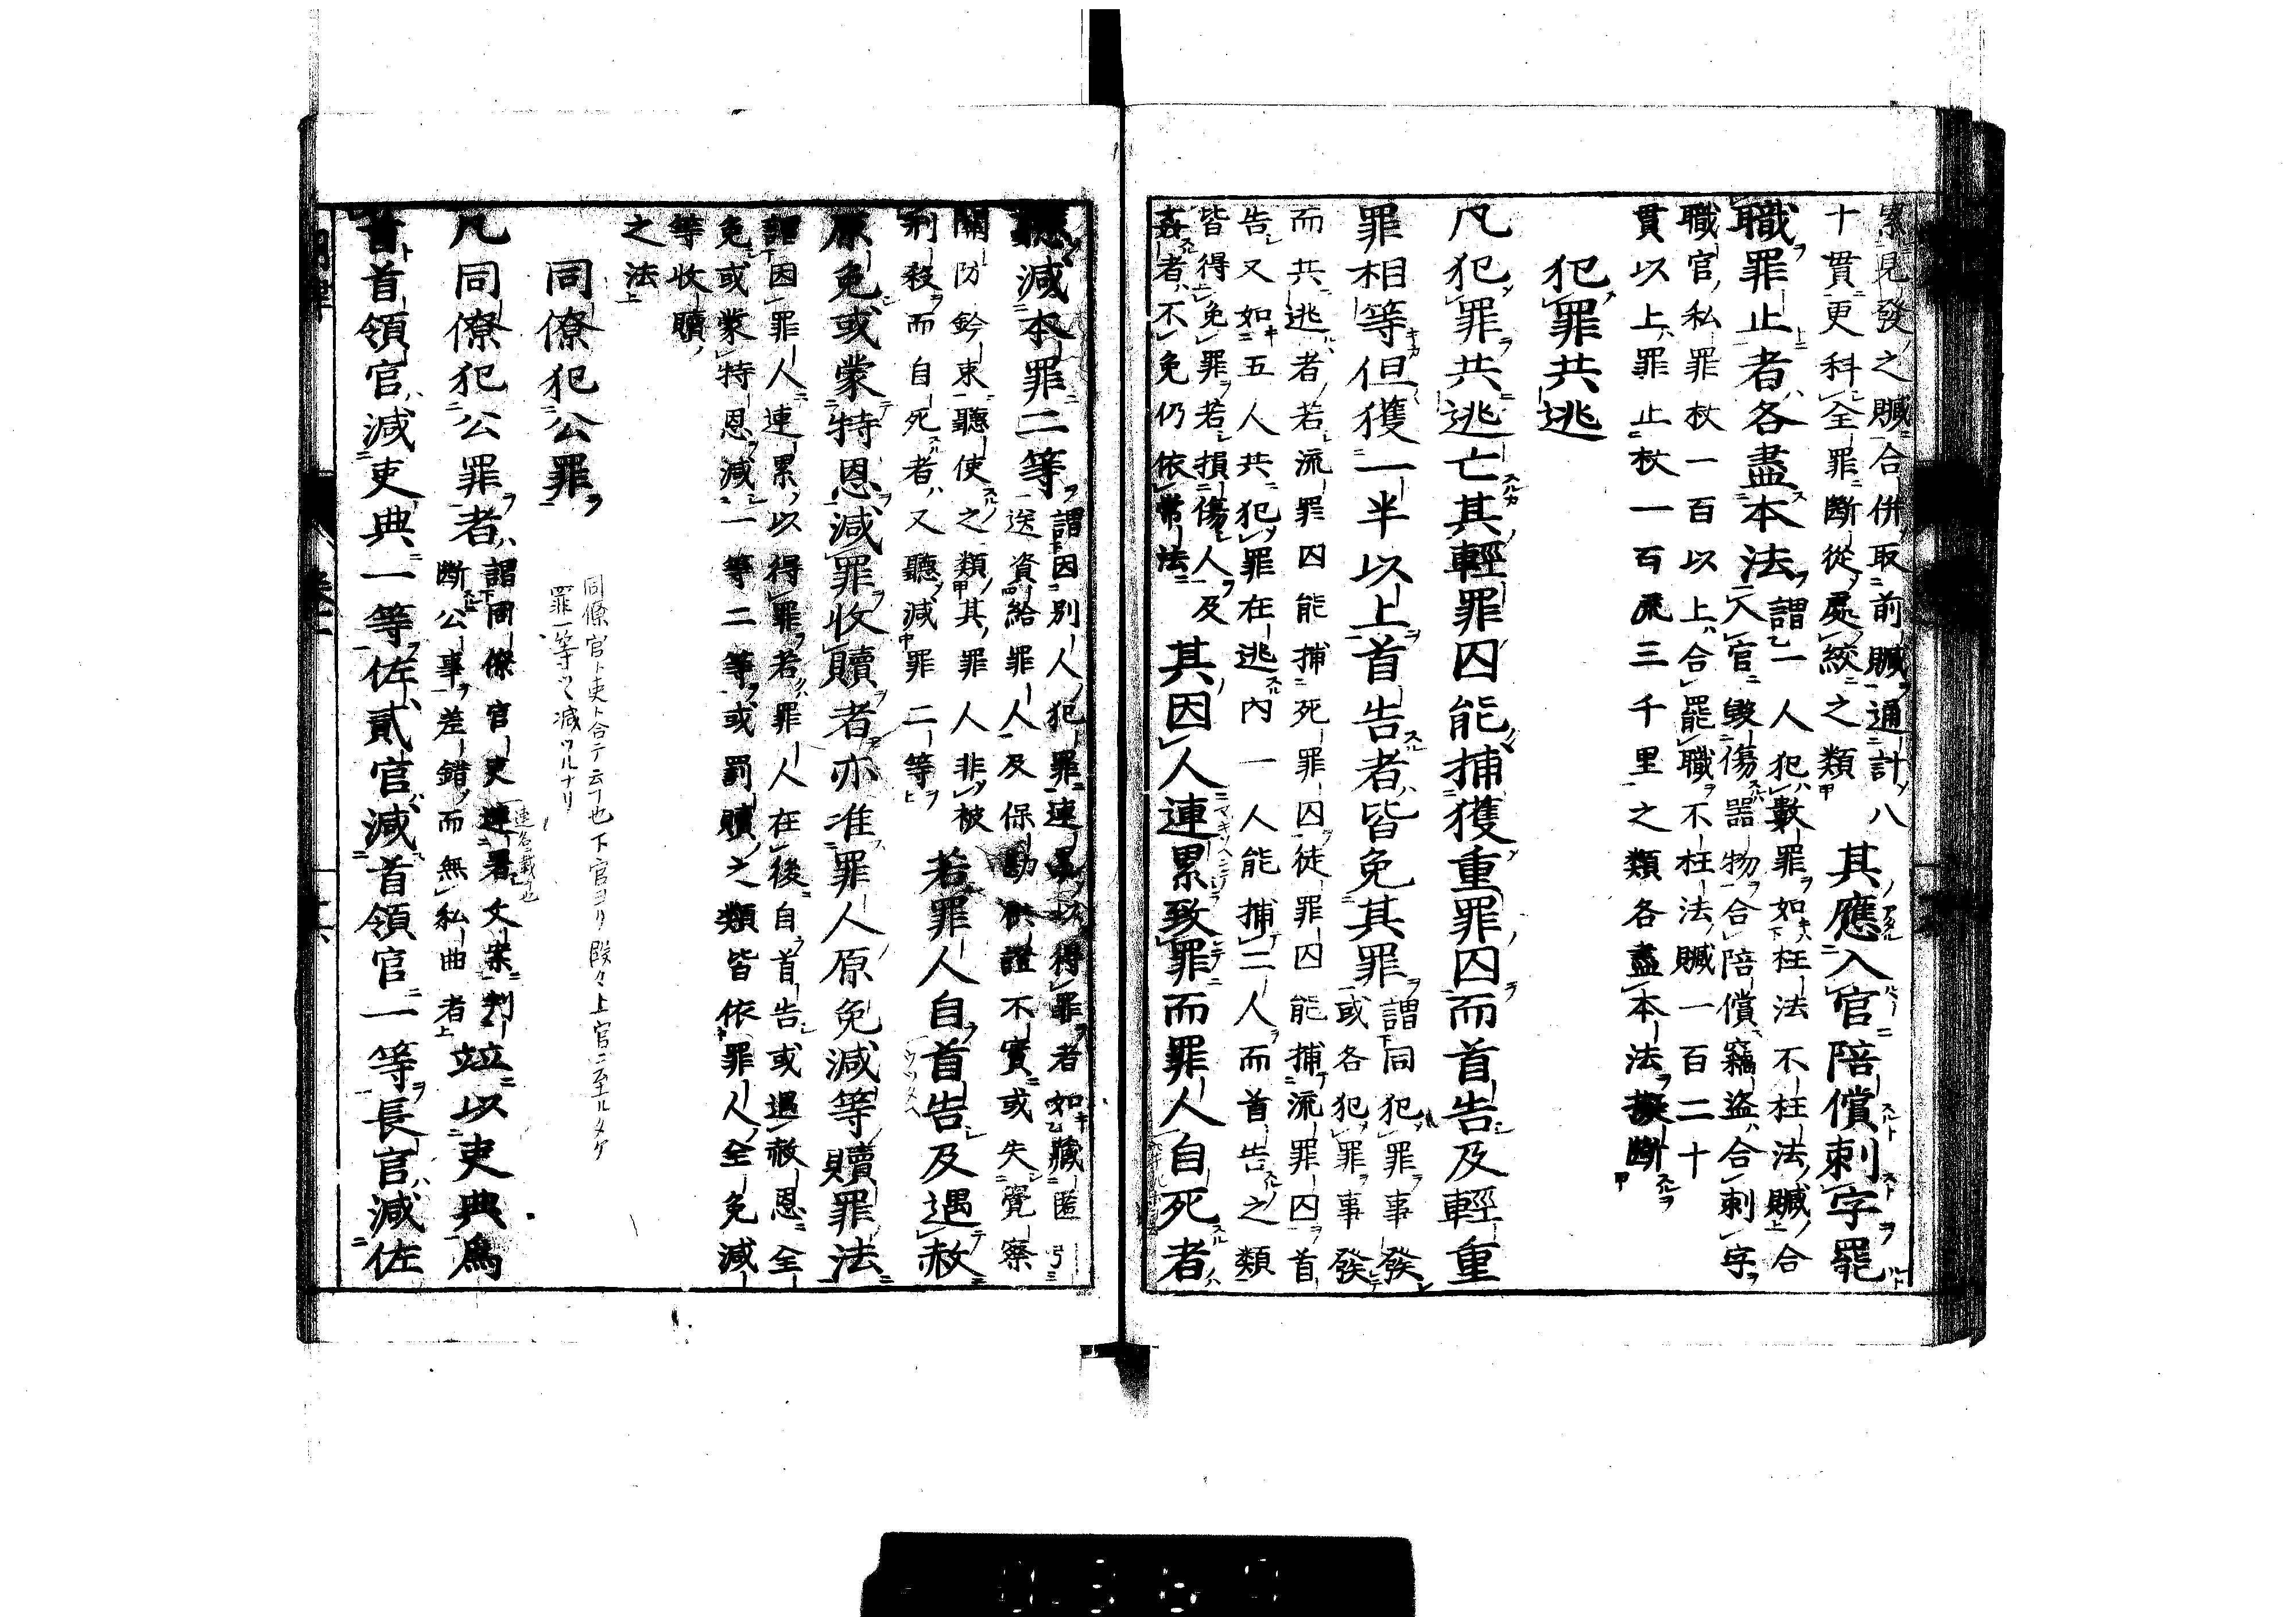 累見發之贓合併取前贓通計八
十貫更科全罪斷從處絞之類
其應入官陪償刺字罷
職罪止者各盡本法
謂一人犯數罪如枉法不枉法贓合
入官毀傷器物合陪償竊盜合刺字
職官私罪杖一百以上合罷職不枉法贓一百二十
貫以上罪止杖一百流三千里之類各盡本法擬斷
犯罪共逃
凡犯罪共逃亡其輕罪囚能捕獲重罪囚而首告及輕重
罪相等但獲一半以上首告者皆免其罪
謂同犯罪事發
或各犯罪事發
而共逃者若流罪囚能捕死罪囚徒罪囚能捕流罪囚首
告又如五人共犯罪在逃內一人能捕二人而首告之類
皆得免罪若損傷人及
姦者不免仍依常法
其因人連累致罪而罪人自死者
聽減本罪二等
謂因別人犯罪連累以得罪者如藏匿引
送資給罪人及保勘供證不實或失覺察
關防鈐束聽使之類其罪人非被
刑殺而自死者又聽減罪二等
若罪人自首告及遇赦
原免或蒙特恩減罪收贖者亦准罪人原免減等贖罪法
謂因罪人連累以得罪若罪人在後自首告或遇赦恩全
免或蒙特恩減一等二等或罰贖之類皆依罪人全免減
等收贖
之法
同僚犯公罪
同僚官ト吏ト合テ云フ也下官ヨリ段々上官ニ至ルタケ
罪一等ツヽ減ツルナリ
凡同僚犯公罪者
謂同僚官吏連署文案判
斷公事差錯而無私曲者
竝以吏典爲
首首領官減吏典一等佐貳官減首領官一等長官減佐